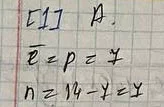 [1] A.
ē = p = 7
n = 14 - 7 = 7